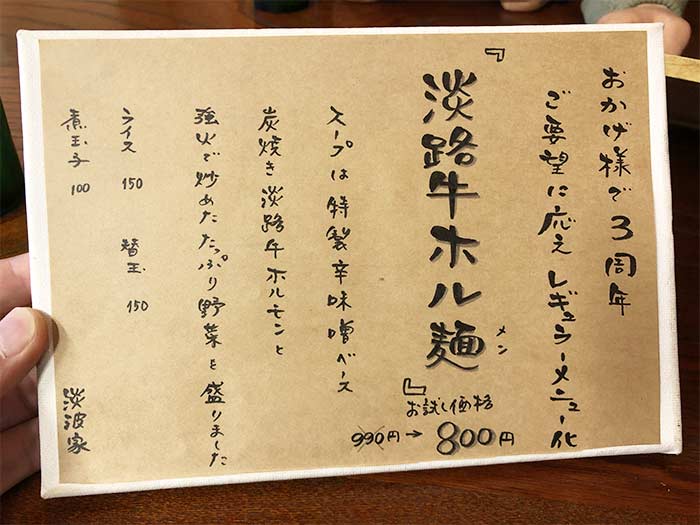 おかげ様で3周年
ご要望に応えレギュラーメニュー化
『淡路牛ホル麺』
メン
お試し価格
990円→800円
スープは特製辛味噌ベース
炭焼き淡路牛ホルモンと
強火で炒めたたっぷり野菜を盛りました
ライス 150 替玉 150
煮玉子 100
淡波家